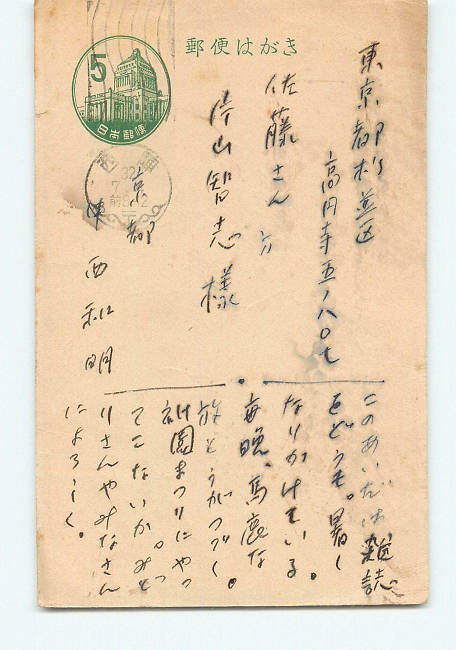 郵便はがき
5
日本郵便
32
7
東京都杉並区
高円寺五ノ八〇七
佐藤さん方
片山智志様
京都
西和明
このあいだは雑誌
をどうも。暑く
なりかけている。
毎晩、馬鹿な
がつづく。
祇園まつりにやっ
てこないか。みど
りさんやみなさん
によろしく。